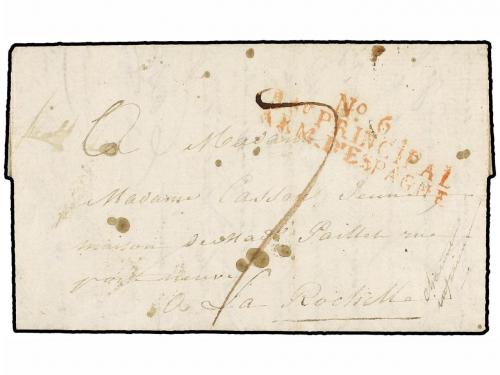 No 6
Bau PRINCIPAL
ARM. D'ESPAGNE
7
A Madame
Madame Casson Jeune
maison de Mad. Paillet rue
port neuve
A La Rochelle